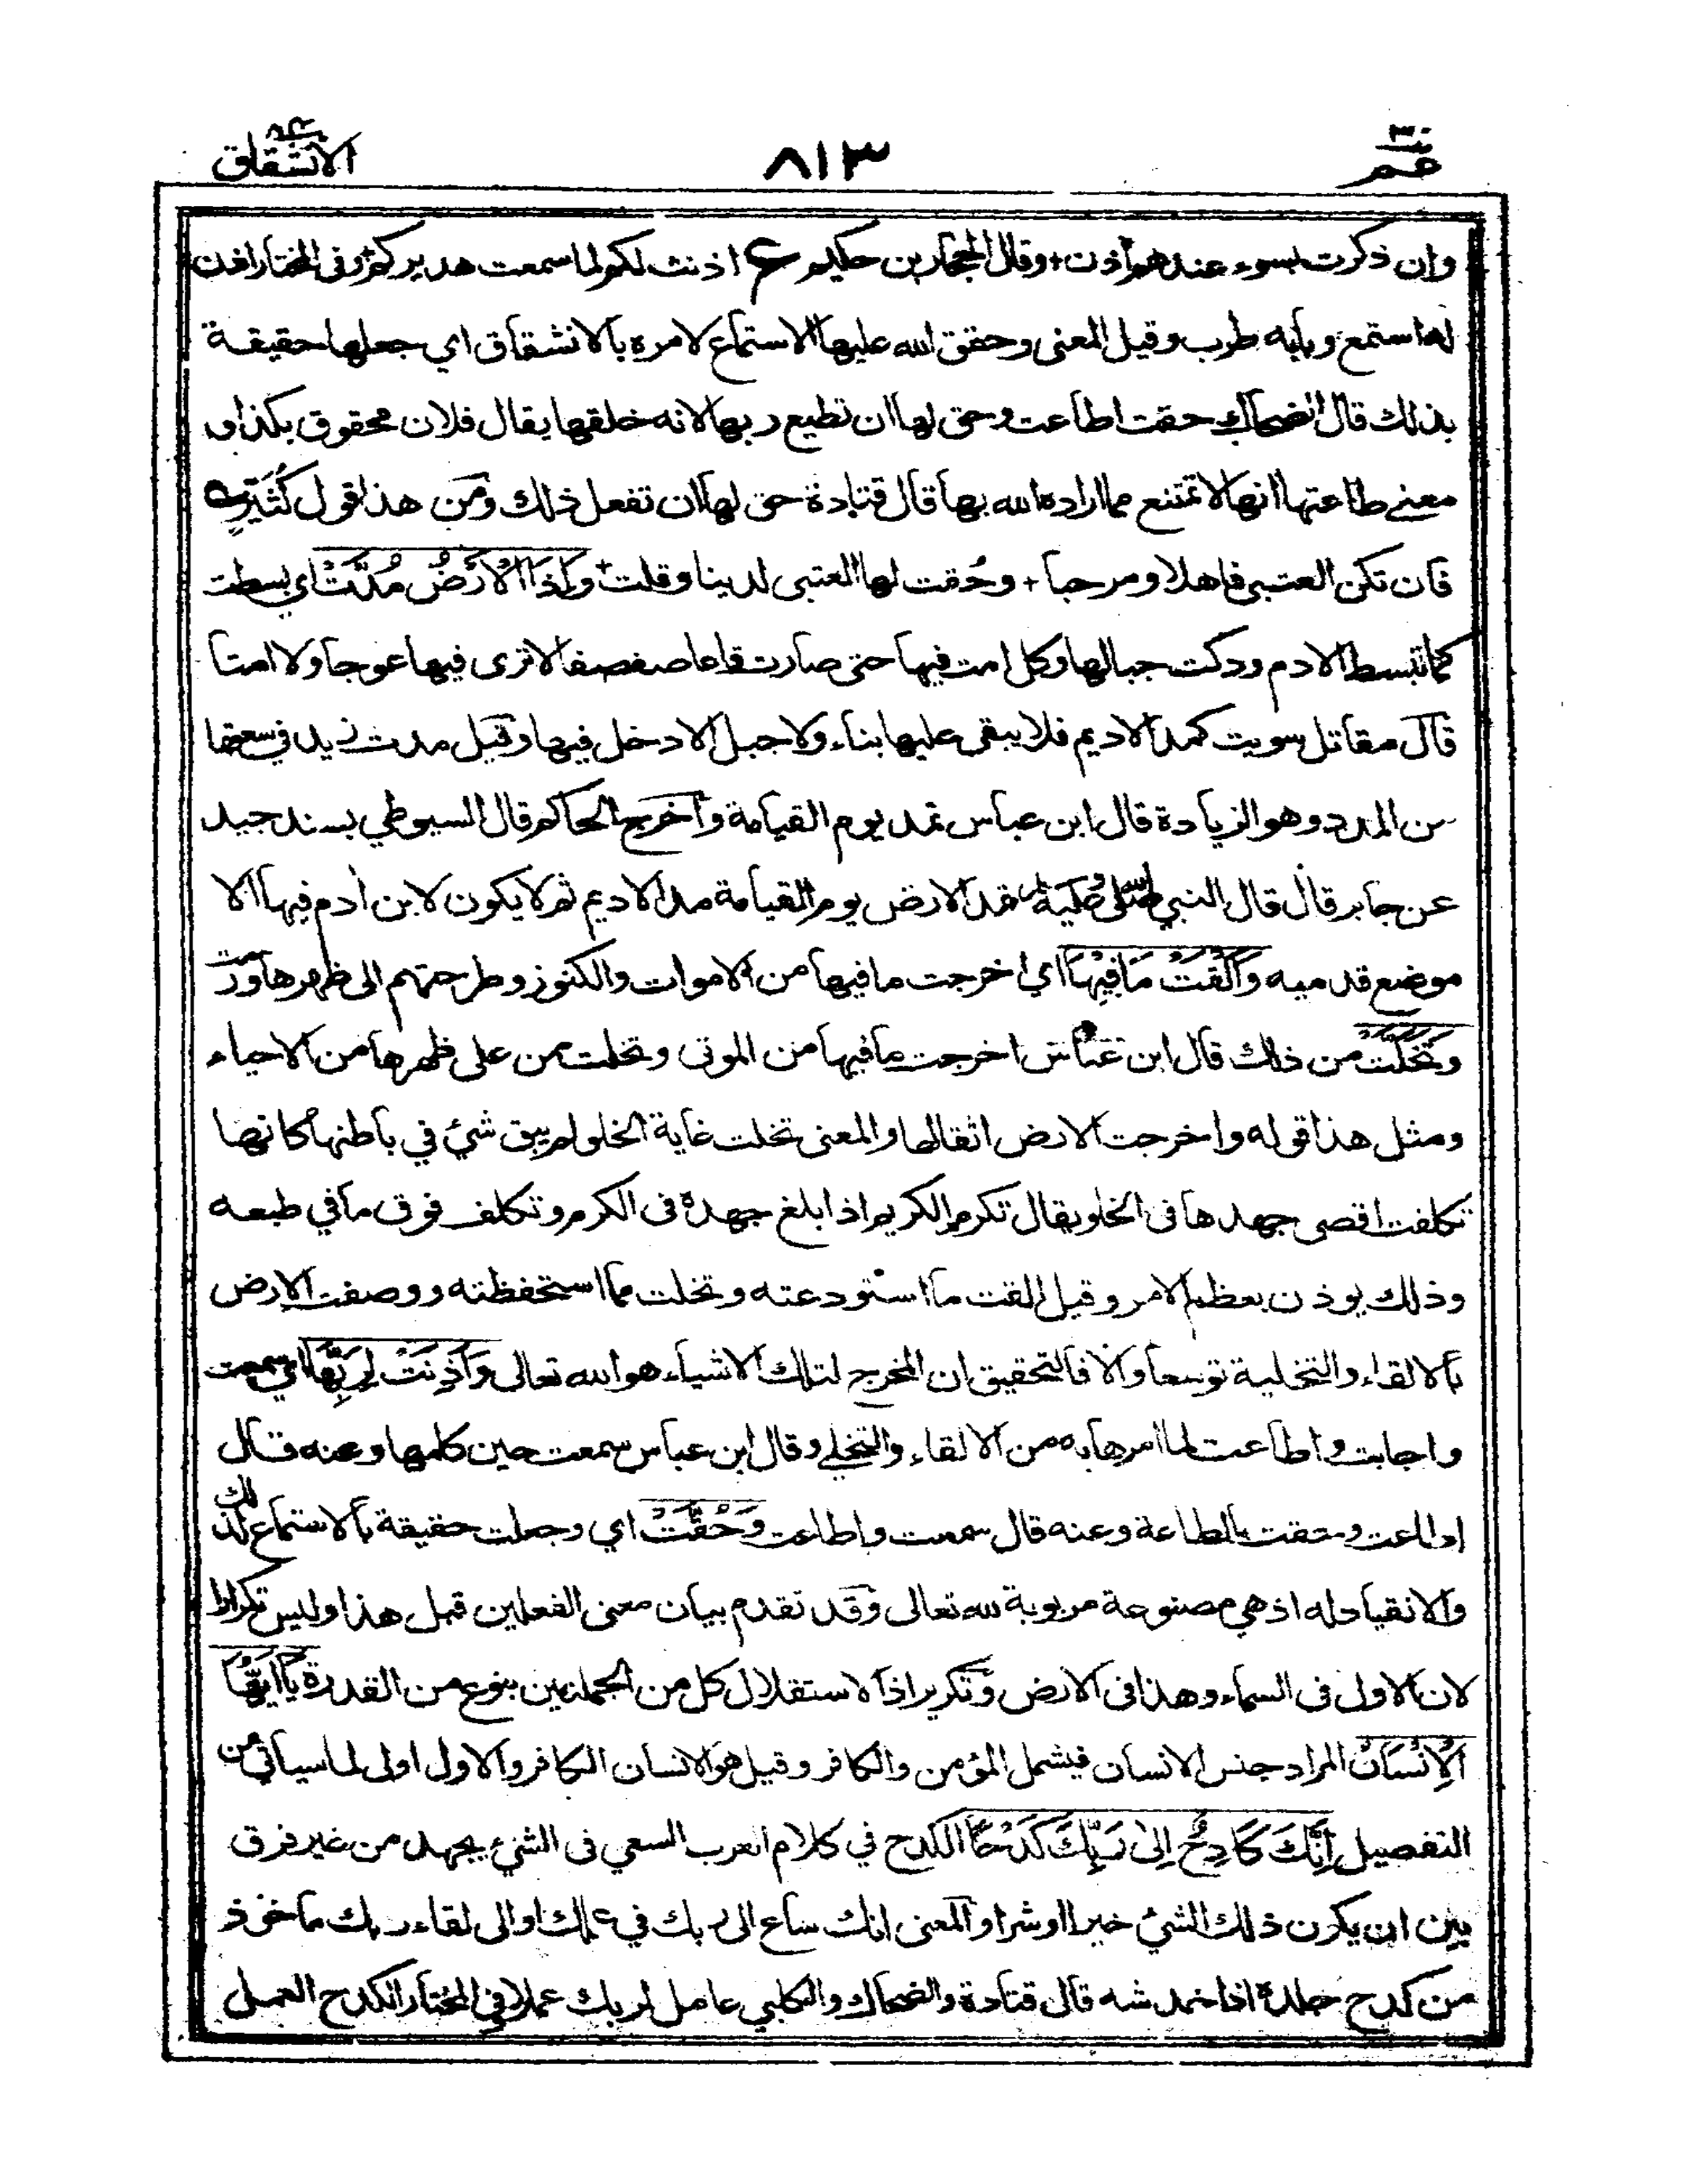 عم ٣٠
٨١٣
الانشقاق ٨٤
وان ذكرت بسوء عندهم أذن + وقال الحجار بن حكيم ع اذنت لكم لما سمعت هديركم وفى المختار اذن
له استمع وبابه طرب وقيل المعنى وحقق الله عليها الاستماع لامره بالانشقاق اي جعلها حقيقة
بذلك قال الضحاك حقت اطاعت وحق لها ان تطيع ربها لانه خلقها يقال فلان محقوق بكذا و
معنے طاعتها انها لا تمتنع مما اراده الله بها قال قتادة حق لها ان تفعل ذلك ومن هذا قول كُثَيِّر ه
فان تكن العتبى فاهلا ومرحبا + وحُقت لها العتبى لدينا وقلت + وَاِذَا الْاَرْضُ مُدَّتْ اي بسطت
كما تبسط الادم ودكت جبالها وكل امت فيها حتى صارت قاعا صفصفا لا ترى فيها عوجا ولا امتا
قال مقاتل سويت كمد الاديم فلا يبقى عليها بناء ولا جبل الا دخل فيها وقيل مدت زيد في سعتها
من المدد وهو الزيادة قال ابن عباس تمد يوم القيامة وأخرج الحاكم قال السيوطي بسند جيد
عن جابر قال قال النبي صلى الله عليه وسلم تمد الارض يوم القيامة مد الاديم ثم لا يكون لابن ادم فيها الا
موضع قدميه وَاَلْقَتْ مَا فِيْهَا اي اخرجت ما فيها من الاموات والكنوز وطرحتهم الى ظهرها
وَتَخَلَّتْ من ذلك قال ابن عباس اخرجت ما فيها من الموتى وتخلت ممن على ظهرها من الاحياء
ومثل هذا قوله واخرجت الارض اثقالها والمعنى تخلت غاية الخلو لم يبق شئ في باطنها كانها
تكلفت اقصى جهدها فى الخلو يقال تكرم الكريم اذا بلغ جهده فى الكرم وتكلف فوق ما في طبعه
وذلك يوذن بعظم الامر وقيل القت ما استودعته وتخلت مما استحفظته ووصفت الارض
بالالقاء والتخلية توسعا والا فالتحقيق ان المخرج لتلك الاشياء هو الله تعالى وَاَذِنَتْ لِرَبِّهَا اي سمعت
واجابت واطاعت لما امرها به من الالقاء والتخلے وقال ابن عباس سمعت حين كلمها وعنه قال
اطاعت وحقت بالطاعة وعنه قال سمعت واطاعت وَحُقَّتْ اي وجعلت حقيقة بالاستماع لذلك
والانقياد له اذ هي مصنوعة مربوبة لله تعالى وقد تقدم بيان معنى الفعلين قبل هذا وليس تكرارا
لان الاول فى السماء وهذا فى الارض وتكرير اذا لاستقلال كل من الجملتين بنوع من القدرة يٰٓاَيُّهَا
الْاِنْسَانُ المراد جنس الانسان فيشمل المؤمن والكافر وقيل هو الانسان الكافر والاول اولى لما سيأتي من
التفصيل اِنَّكَ كَادِحٌ اِلٰى رَبِّكَ كَدْحًا الكدح في كلام العرب السعي فى الشئ بجهد من غير فرق
بين ان يكون ذلك الشئ خيرا او شرا والمعنى انك ساع الى ربك في عملك او الى لقاء ربك ماخوذ
من كدح جلده اذا خدشه قال قتادة والضحاك والكلبي عامل لربك عملا وفي المختار الكدح العمل